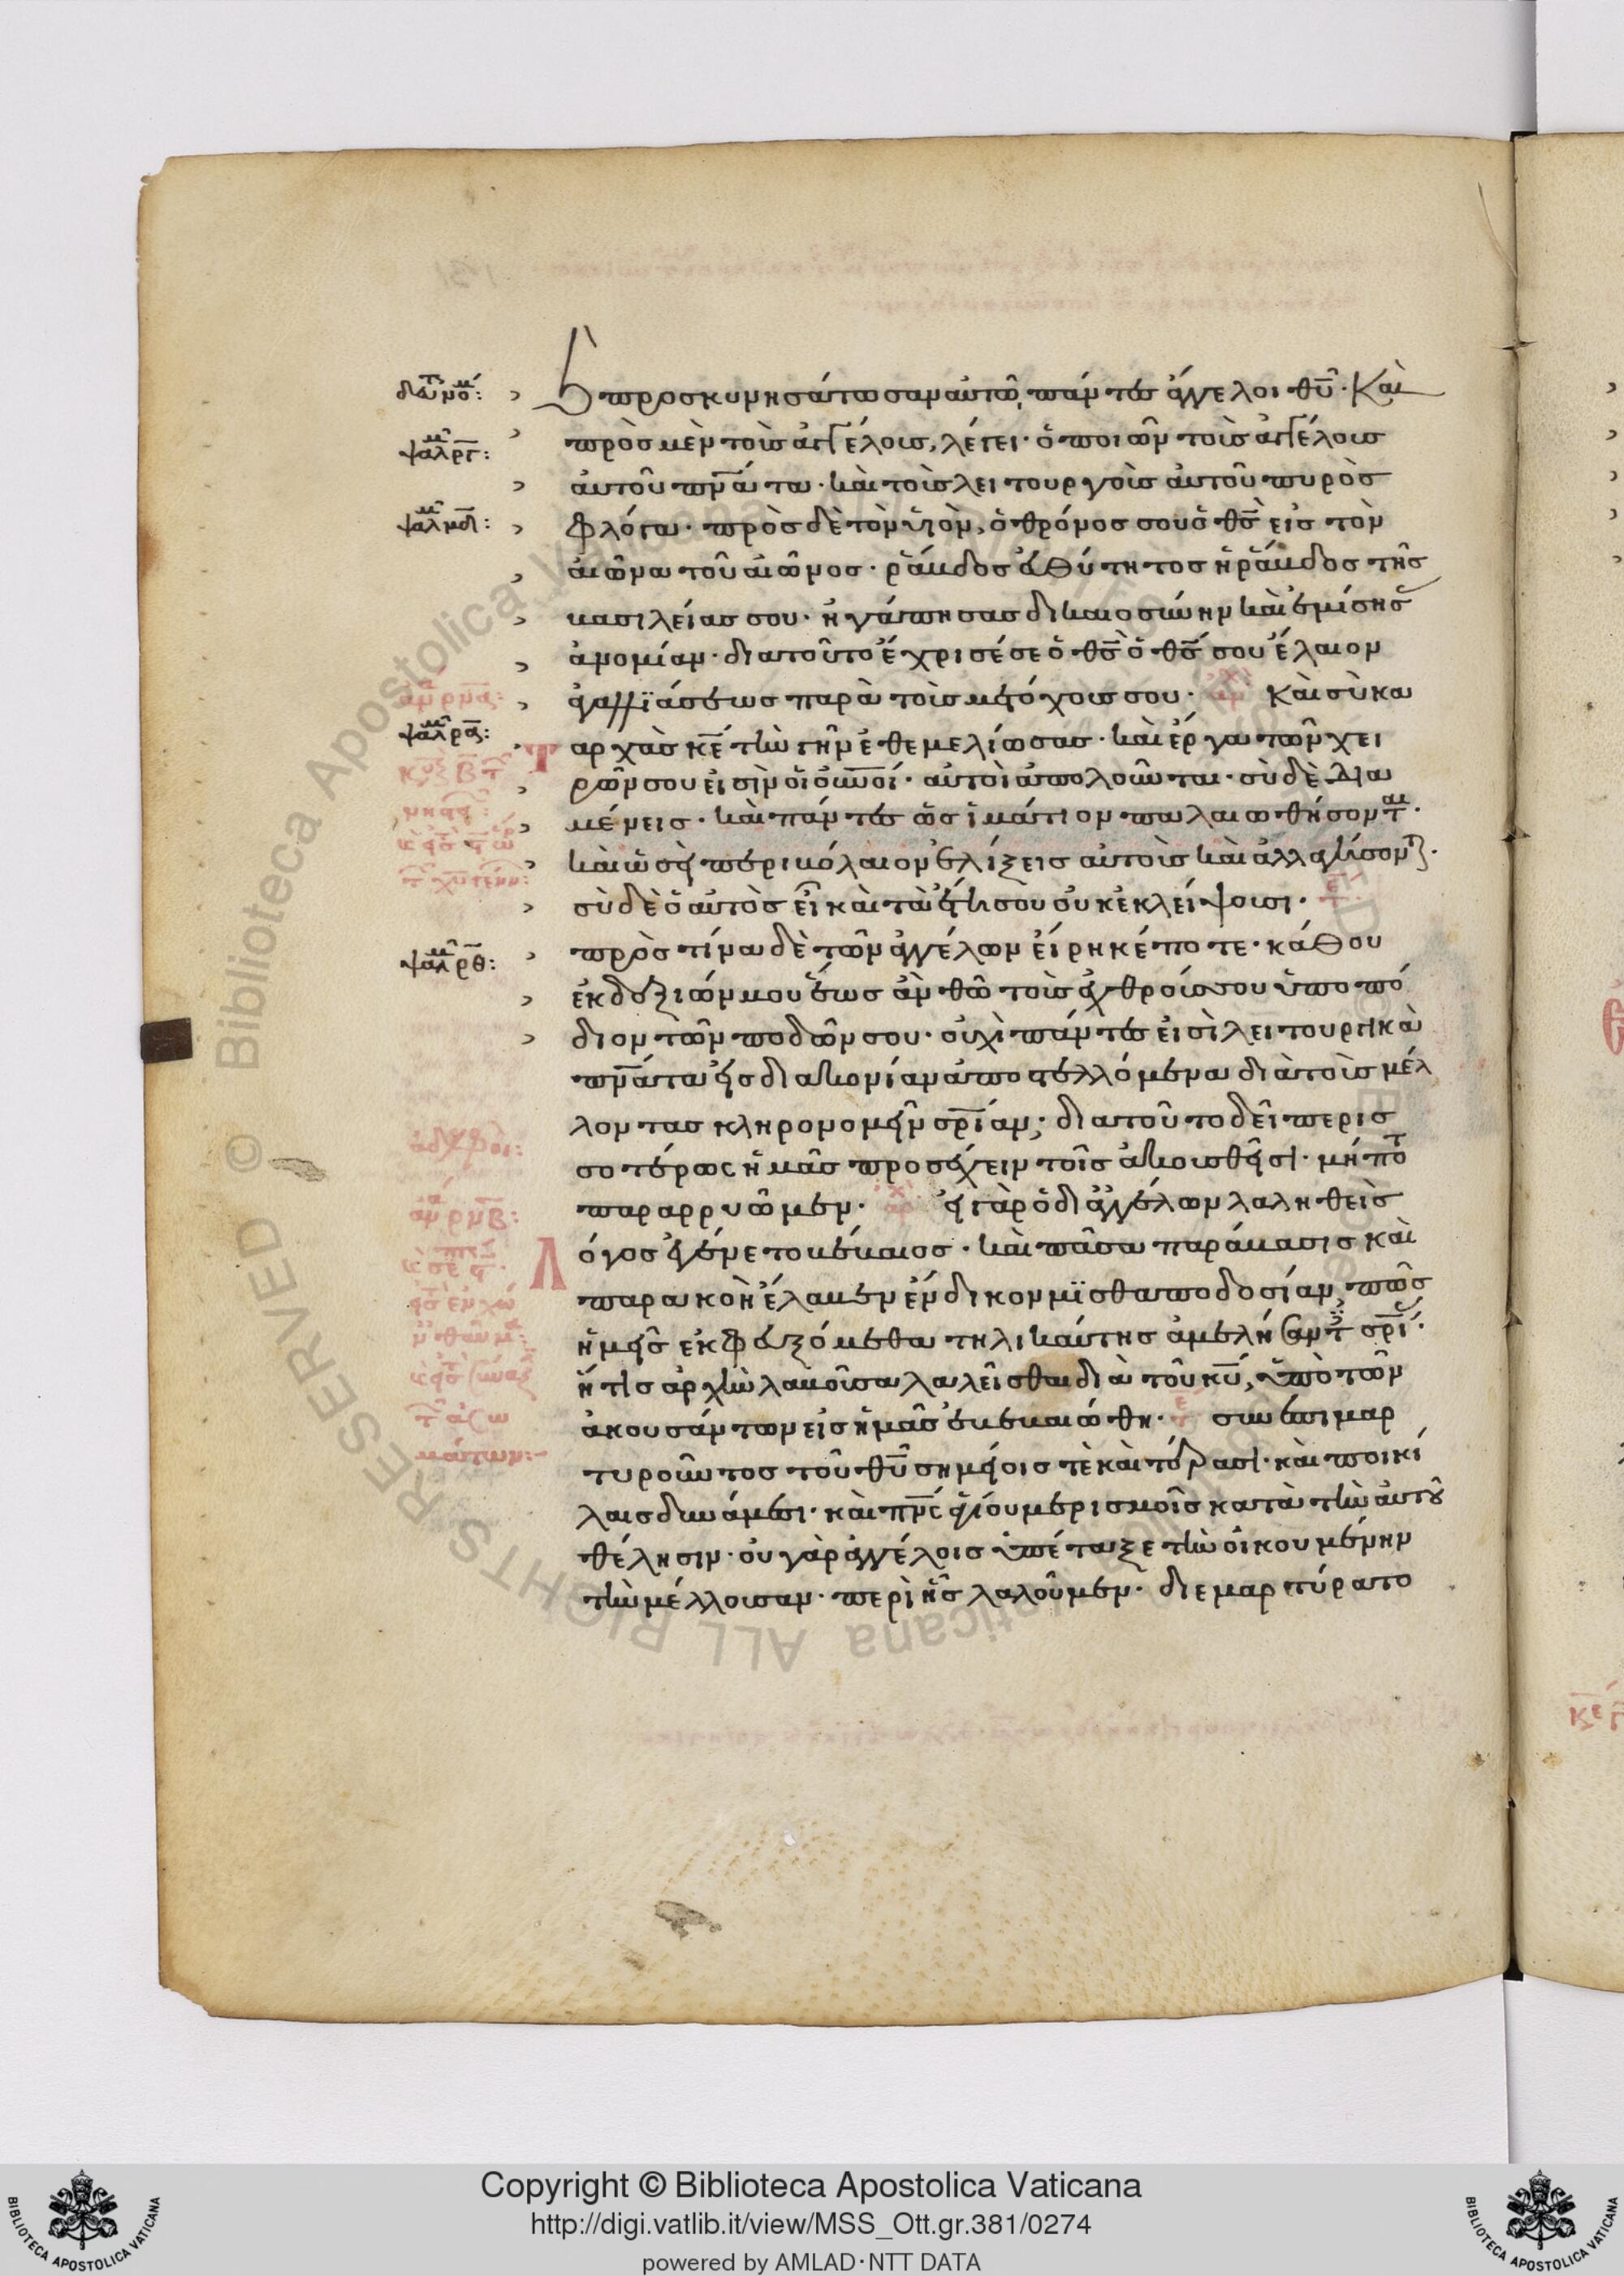 δευτ νο:
προσκυνησάτωσαν αὐτῶ, πάντες ἄγγελοι θῦ· Καὶ
ψαλμ ργ:
πρὸς μὲν τοὺς ἀγγέλους, λέγει· ὁ ποιῶν τοὺς ἀγγέλους
αὐτοῦ πνάτα· καὶ τοὺς λειτουργοὺς αὐτοῦ πυρὸς
ψαλμ μδ:
φλόγα· πρὸς δὲ τὸν υἱὸν, ὁ θρόνος σου ὁ θς εἰς τὸν
αἰῶνα τοῦ αἰῶνος· ῥάβδος εὐθύτητος ἡ ῥάβδος τῆς
βασιλείας σου· ἠγάπησας δικαιοσύνην καὶ ἐμίσησας
ἀνομίαν· διατοῦτο ἔχρισέ σε ὁ θς ὁ θς σου ἔλαιον
ἀγαλλιάσεως παρὰ τοὺς μετόχους σου· Καὶ σὺ κα
ψαλμ ρα:
ταρχὰς κε τὴν γῆν ἐθεμελίωσας· καὶ ἔργα τῶν χει
ρῶν σου εἰσὶν οἱ οὐνοί· αὐτοὶ ἀπολοῦνται· σὺ δὲ δια
μένεις· καὶ πάντες ὡς ἱμάτιον παλαιωθήσονται·
καὶ ὡσεὶ περιβόλαιον ἑλίξεις αὐτοὺς καὶ ἀλλαγήσονται·
σὺ δὲ ὁ αὐτὸς εἶ καὶ τὰ ἔτη σου οὐκ ἐκλείψουσι·
ψαλμ ρθ:
πρὸς τίνα δὲ τῶν ἀγγέλων εἴρηκέ ποτε· κάθου
ἐκ δεξιῶν μου ἕως ἂν θῶ τοὺς ἐχθρούς σου ὑποπό
διον τῶν ποδῶν σου· οὐχὶ πάντες εἰσὶ λειτουργικὰ
πνάτα εἰς διακονίαν ἀποστελλόμενα διὰ τοὺς μέλ
λοντας κληρονομεῖν σρίαν; διατοῦτο δεῖ περισ
σοτέρως ἡμᾶς προσέχειν τοῖς ἀκουσθεῖσι· μήποτ
παραρρυῶμεν· εἰ γὰρ ὁ δι ἀγγέλων λαληθεὶς
λόγος ἐγένετο βέβαιος· καὶ πᾶσα παράβασις καὶ
παρακοὴ ἔλαβεν ἔνδικον μισθαποδοσίαν, πῶς
ἡμεῖς ἐκφευξόμεθα τηλικαύτης ἀμελήσαντες σρίας·
ἥτις ἀρχὴν λαβοῦσα λαλεῖσθαι διὰ τοῦ κυ, ὑπὸ τῶν
ἀκουσάντων εἰς ἡμᾶς ἐβεβαιώθη· συνεπιμαρ
τυροῦντος τοῦ θυ σημείοις τὲ καὶ τέρασι· καὶ ποικί
λαις δυνάμεσι· καὶ πνς ἁγίου μερισμοῖς κατὰ τὴν αὐτοῦ
θέλησιν· οὐ γὰρ ἀγγέλοις ὑπέταξε τὴν οἰκουμένην
τὴν μέλλουσαν· περὶ ἧς λαλοῦμεν· διεμαρτύρατο
© Biblioteca Apostolica Vaticana ALL RIGHTS RESERVED
Copyright © Biblioteca Apostolica Vaticana
http://digi.vatlib.it/view/MSS_Ott.gr.381/0274
powered by AMLAD·NTT DATA
BIBLIOTECA APOSTOLICA VATICANA
BIBLIOTECA APOSTOLICA VATICANA